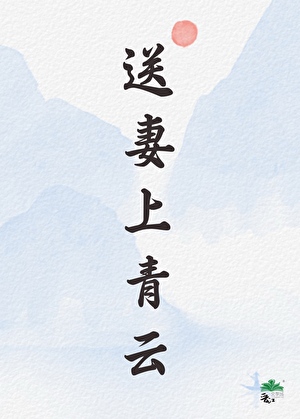 送妻上青云